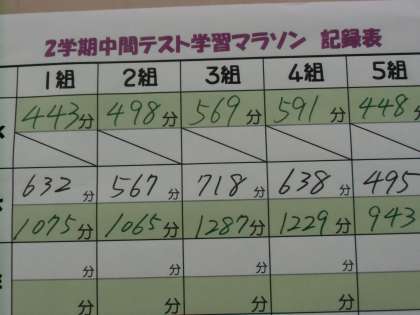 2学期中間テスト学習マラソン 記録表
1組 2組 3組 4組 5組
443分 498分 569分 591分 448分
632分 567分 718分 638分 495
1075分 1065分 1287分 1229分 943
分 分 分 分
分 分 分 分